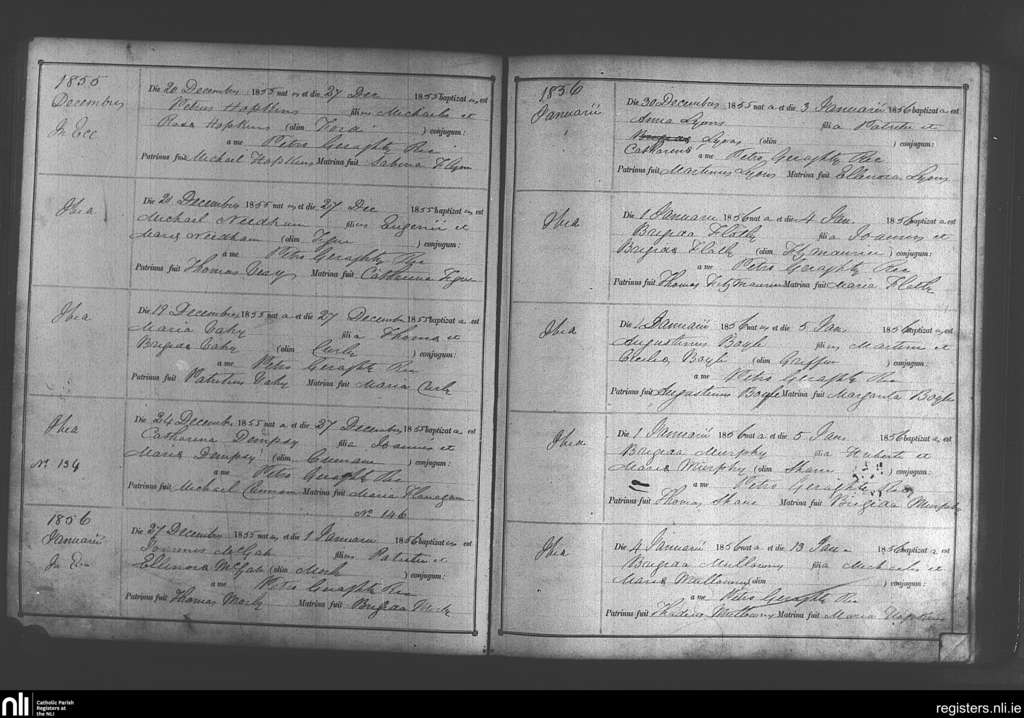 1855
Decembris
In Ecc
Die 20 Decembris 1855 nat us et die 27 Dec 1855 baptizat us est
Petrus Hopkins filius Michaelis et
Rosa Hopkins (olim ) conjugum:
a me Petro Geraghty Rec
Patrinus fuit Michael Hopkins Matrina fuit Sabina Flynn
Ibia
Die 20 Decembris 1855 nat us et die 27 Dec 1855 baptizat us est
Michael Needham filius Eugenii et
Maria Needham (olim ) conjugum:
a me Petro Geraghty Rec
Patrinus fuit Thomas Matrina fuit Catharina
Ibia
Die 19 Decembris 1855 nat a et die 27 Decembr 1855 baptizat a est
Maria filia Thoma et
Brigida (olim ) conjugum:
a me Petro Geraghty Rec
Patrinus fuit Patritius Matrina fuit Maria
Ibia
No 134
Die 24 Decembris 1855 nat a et die 27 Decembris 1855 baptizat a est
Catharina Dempsy filia Joannis et
Maria Dempsy (olim Cunnan ) conjugum:
a me Petro Geraghty Rec
Patrinus fuit Michael Cunnan Matrina fuit Maria Flanagan
No 146
1856
Januarii
In
Die 27 Decembris 1855 nat us et die 1 Januarii 1856 baptizat us est
Joannes McGah filius Patritii et
Elenora McGah (olim ) conjugum:
a me Petro Geraghty Rec
Patrinus fuit Thomas Matrina fuit Brigida
1856
Januarii
Die 30 Decembris 1855 nat a et die 3 Januarii 1856 baptizat a est
Anna Lyons filia Patritii et
Lyons (olim ) conjugum:
Catharina a me Petro Geraghty Rec
Patrinus fuit Martinus Lyons Matrina fuit Ellenora Lyons
Ibia
Die 1 Januarii 1856 nat a et die 4 Jan. 1856 baptizat a est
Brigida Flatly filia Joannis et
Brigida Flatly (olim Fitzmaurice ) conjugum:
a me Petro Geraghty Rec
Patrinus fuit Thomas Fitzmaurice Matrina fuit Maria Flatly
Ibia
Die Januarii 1856 nat us et die 5 Jan. 1856 baptizat us est
Augustinus Boyle filius Martini et
Cecilia Boyle (olim Griffin ) conjugum:
a me Petro Geraghty Rec
Patrinus fuit Augustinus Boyle Matrina fuit Margarita Boyle
Ibia
Die 1 Januarii 1856 nat a et die 5 Jan. 1856 baptizat a est
Brigida Murphy filia Huberti et
Maria Murphy (olim Shane ) conjugum:
a me Petro Geraghty Rec
Patrinus fuit Thomas Shane Matrina fuit Brigida Murphy
Ibia
Die 4 Januarii 1856 nat a et die 13 Jan. 1856 baptizat a est
Brigida Mullowny filia Michaelis et
Maria Mullowny (olim ) conjugum:
a me Petro Geraghty Rec
Patrinus fuit Thadeus Mullowny Matrina fuit Maria Hopkins
nli
Catholic Parish
Registers at
the NLI
registers.nli.ie